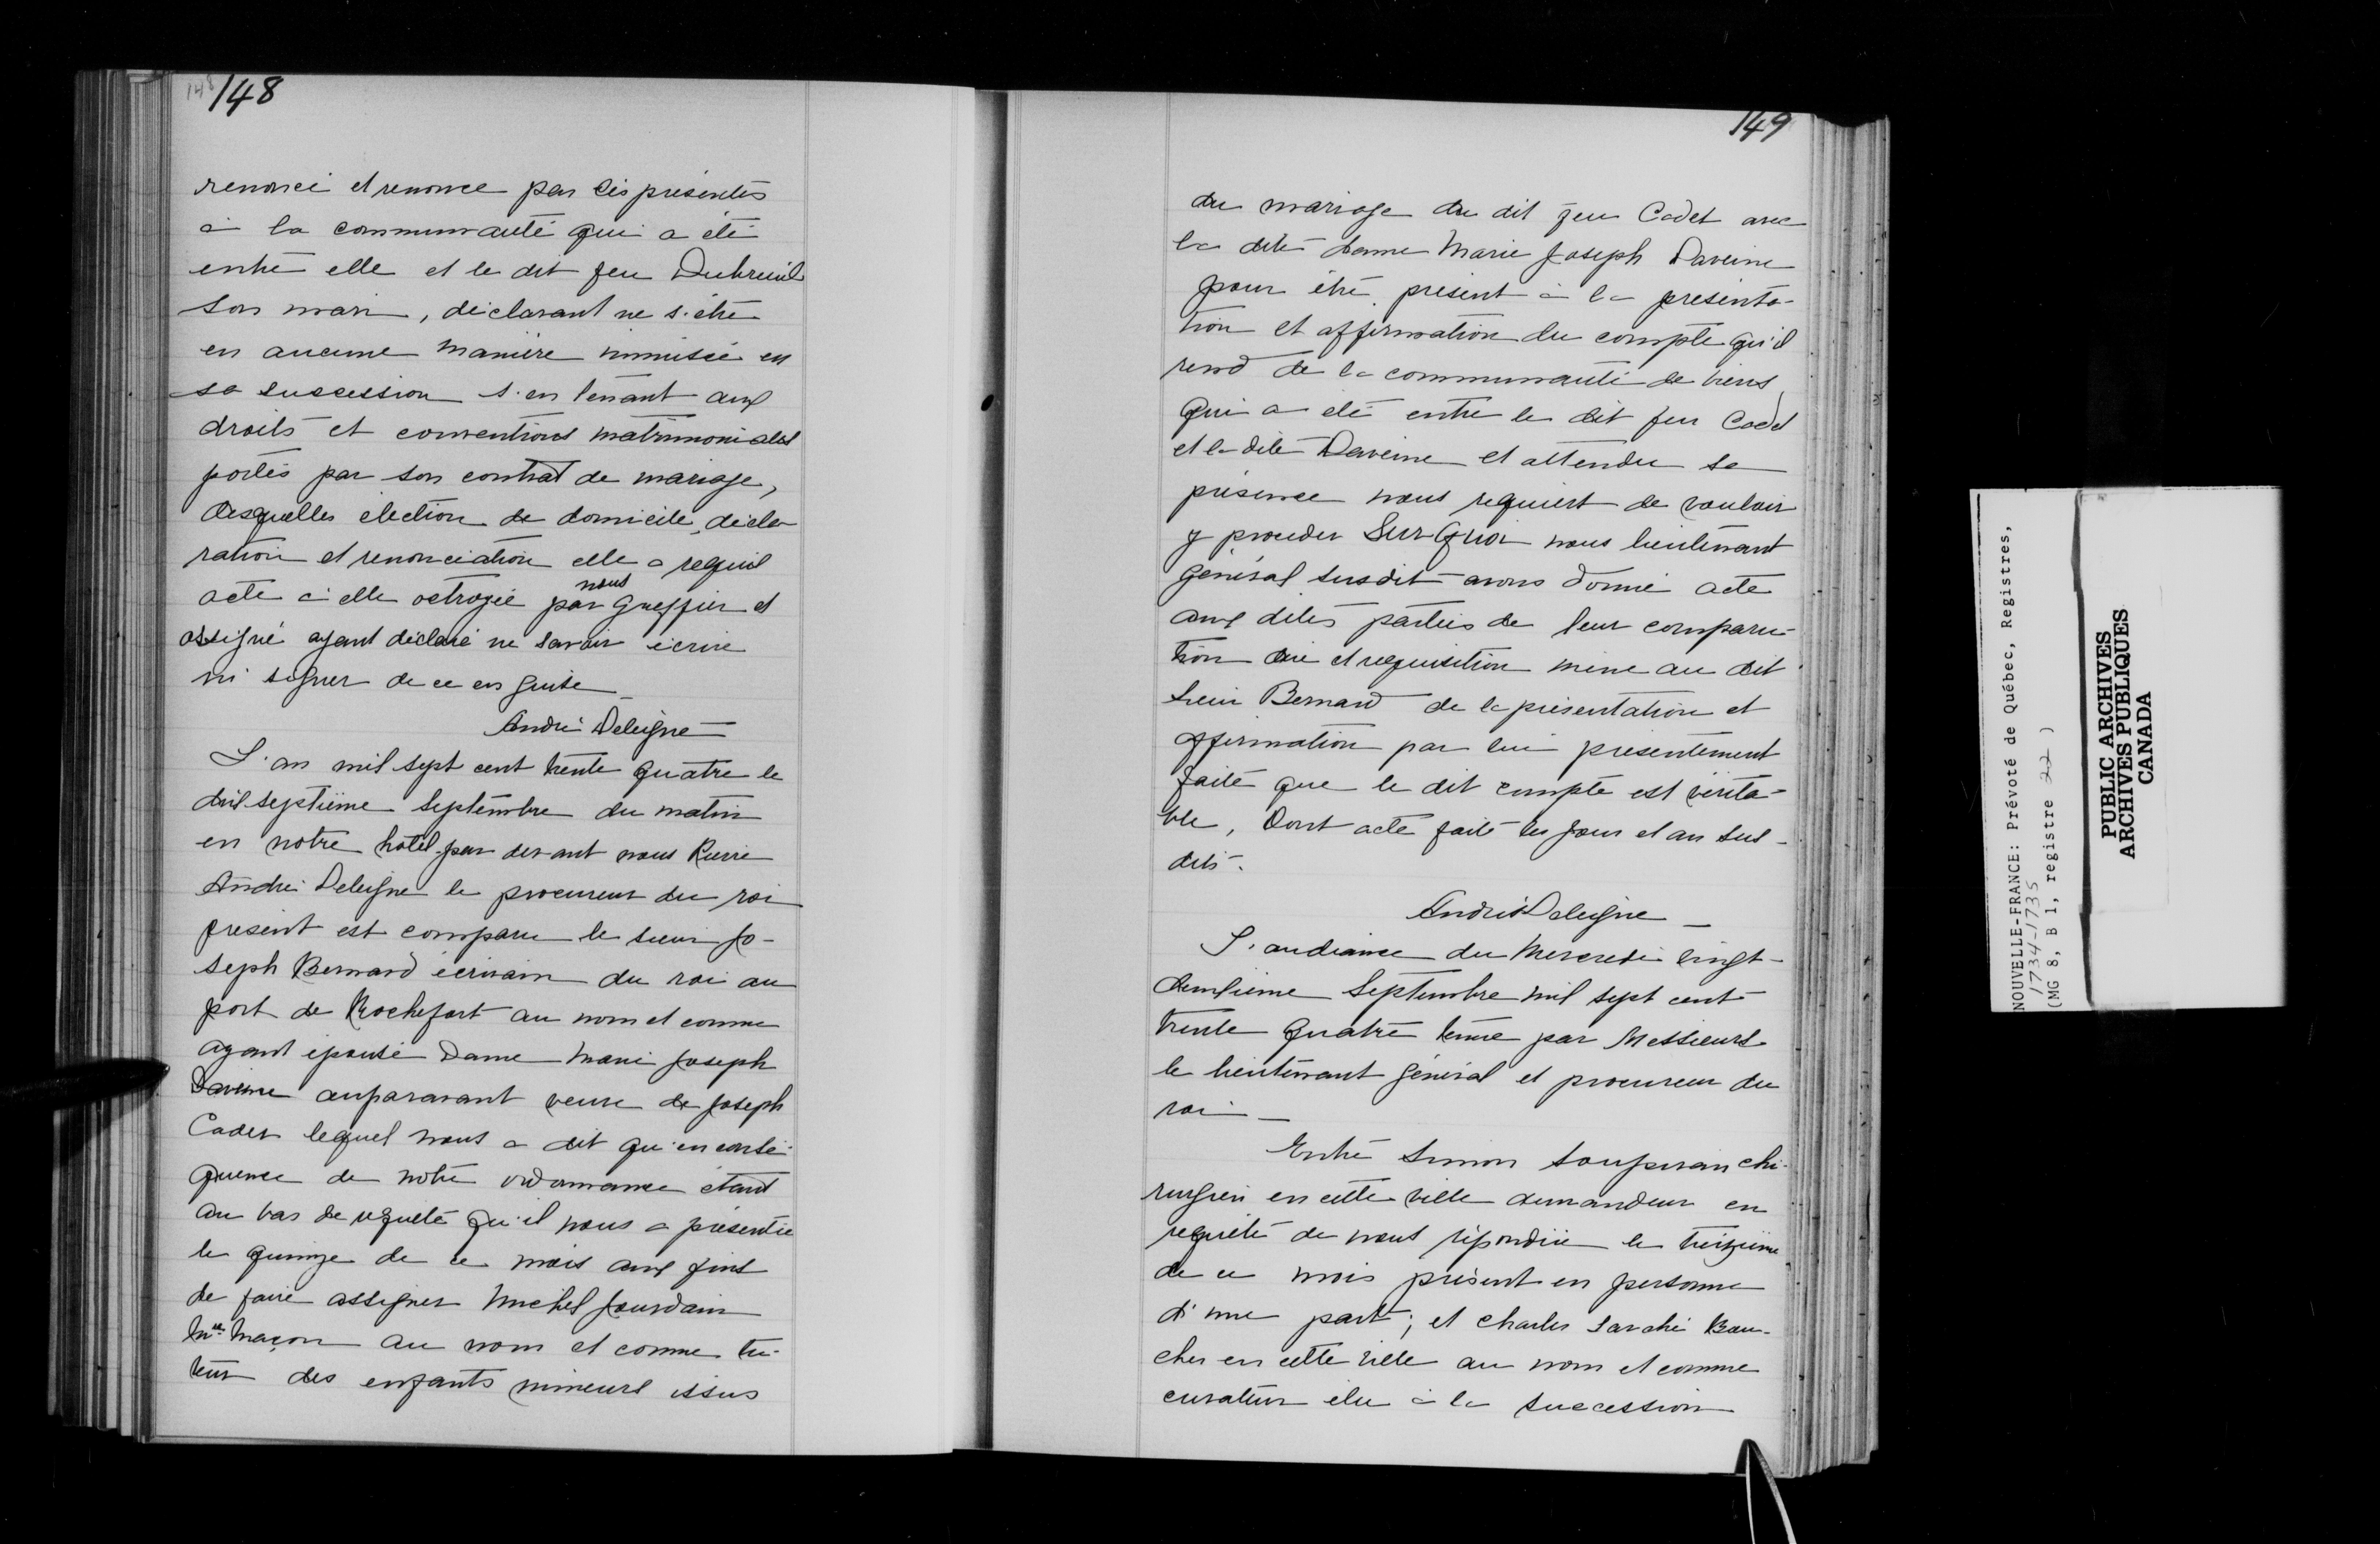 148
148
renoncé et renonce par ces présentes
à la communauté qui a été
entre elle et le dit feu Dubreuil
son mari, déclarant ne s'être
en aucune manière immiscée en
sa succession s'en tenant aux
droits et conventions matrimoniales
portés par son contrat de mariage,
desquelles élection de domicile, décla
ration et renonciation elle a requis
acte à elle octroyée par nous Greffier et
assigné ayant déclaré ne savoir écrire
ni signer de ce en quise
André Deleigne
L'an mil sept cent trente quatre le
dixseptième septembre du matin
en notre hôtel par devant nous Pierre
André Deleigne le procureur du roi
présent est comparu le sieur Jo-
seph Bernard écrivain du roi au
port de Rochefort au nom et comme
ayant épousé Dame Marie Joseph
Daveine auparavant veuve de Joseph
Cadet lequel nous a dit qu'en consé-
quence de notre ordonnance étant
au bas de requête qu'il nous a présentée
le quinze de ce mois aux fins
de faire assigner Michel Jourdain
Mtre Maçon au nom et comme tu-
teur des enfants mineurs issus
149
du mariage du dit feu Cadet avec
la dite dame Marie Joseph Daveine
pour être présent à la présenta-
tion et affirmation du compte qu'il
rend de la communauté de biens
qui a été entre le dit feu Cadet
et la dite Daveine et attendu sa
présence nous requiert de vouloir
y procéder Sur Quoi nous lieutenant
général susdit avons donné acte
aux dites parties de leur comparu-
tion dire et réquisition même au dit
sieur Bernard de la présentation et
affirmation par lui présentement
faite que le dit compte est vérita-
ble, Dont acte fait les jour et an sus-
dits.
André Deleigne
L'audiance du Mercredi vingt-
deuxième Septembre mil sept cent
trente quatre tenue par Messieurs
le lieutenant général et procureur du
roi
Entre Simon Soupiran chi-
rurgien en cette ville demandeur en
requête de nous répondüe le treizième
de ce mois présent en personne
d'une part; et Charles Larché Bou-
cher en cette ville au nom et comme
curateur élu à la succession
NOUVELLE-FRANCE: Prévoté de Québec, Registres,
1734-1735
(MG 8, B 1, registre 22 )
PUBLIC ARCHIVES
ARCHIVES PUBLIQUES
CANADA